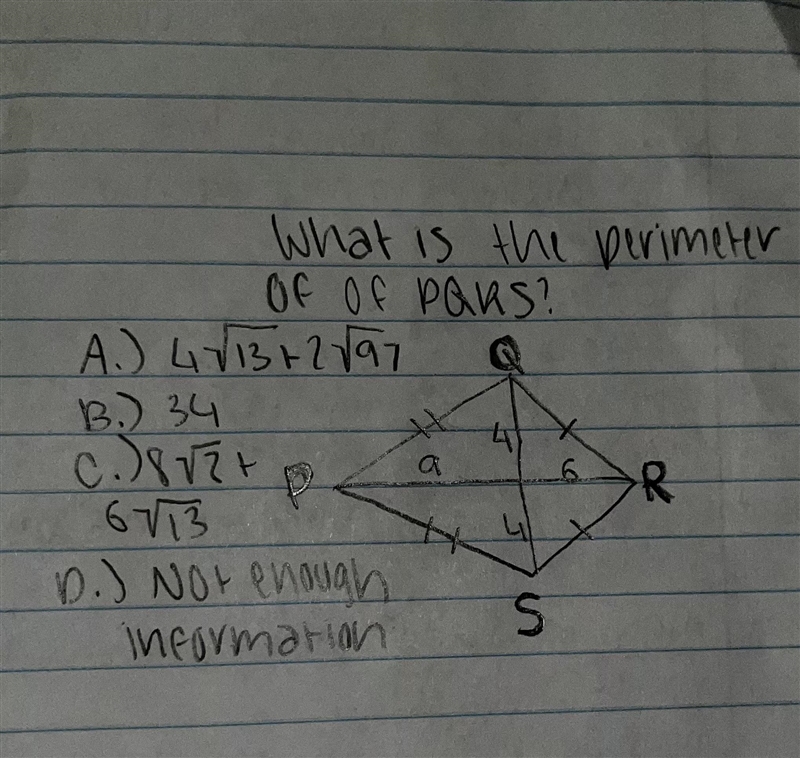 What is the perimeter
OF OF PQRS?
A.) 4√13+2√97
B.) 34
C.) 8√2+
6√13
D.) Not enough
information
Q
4
9
6
P
R
4
S